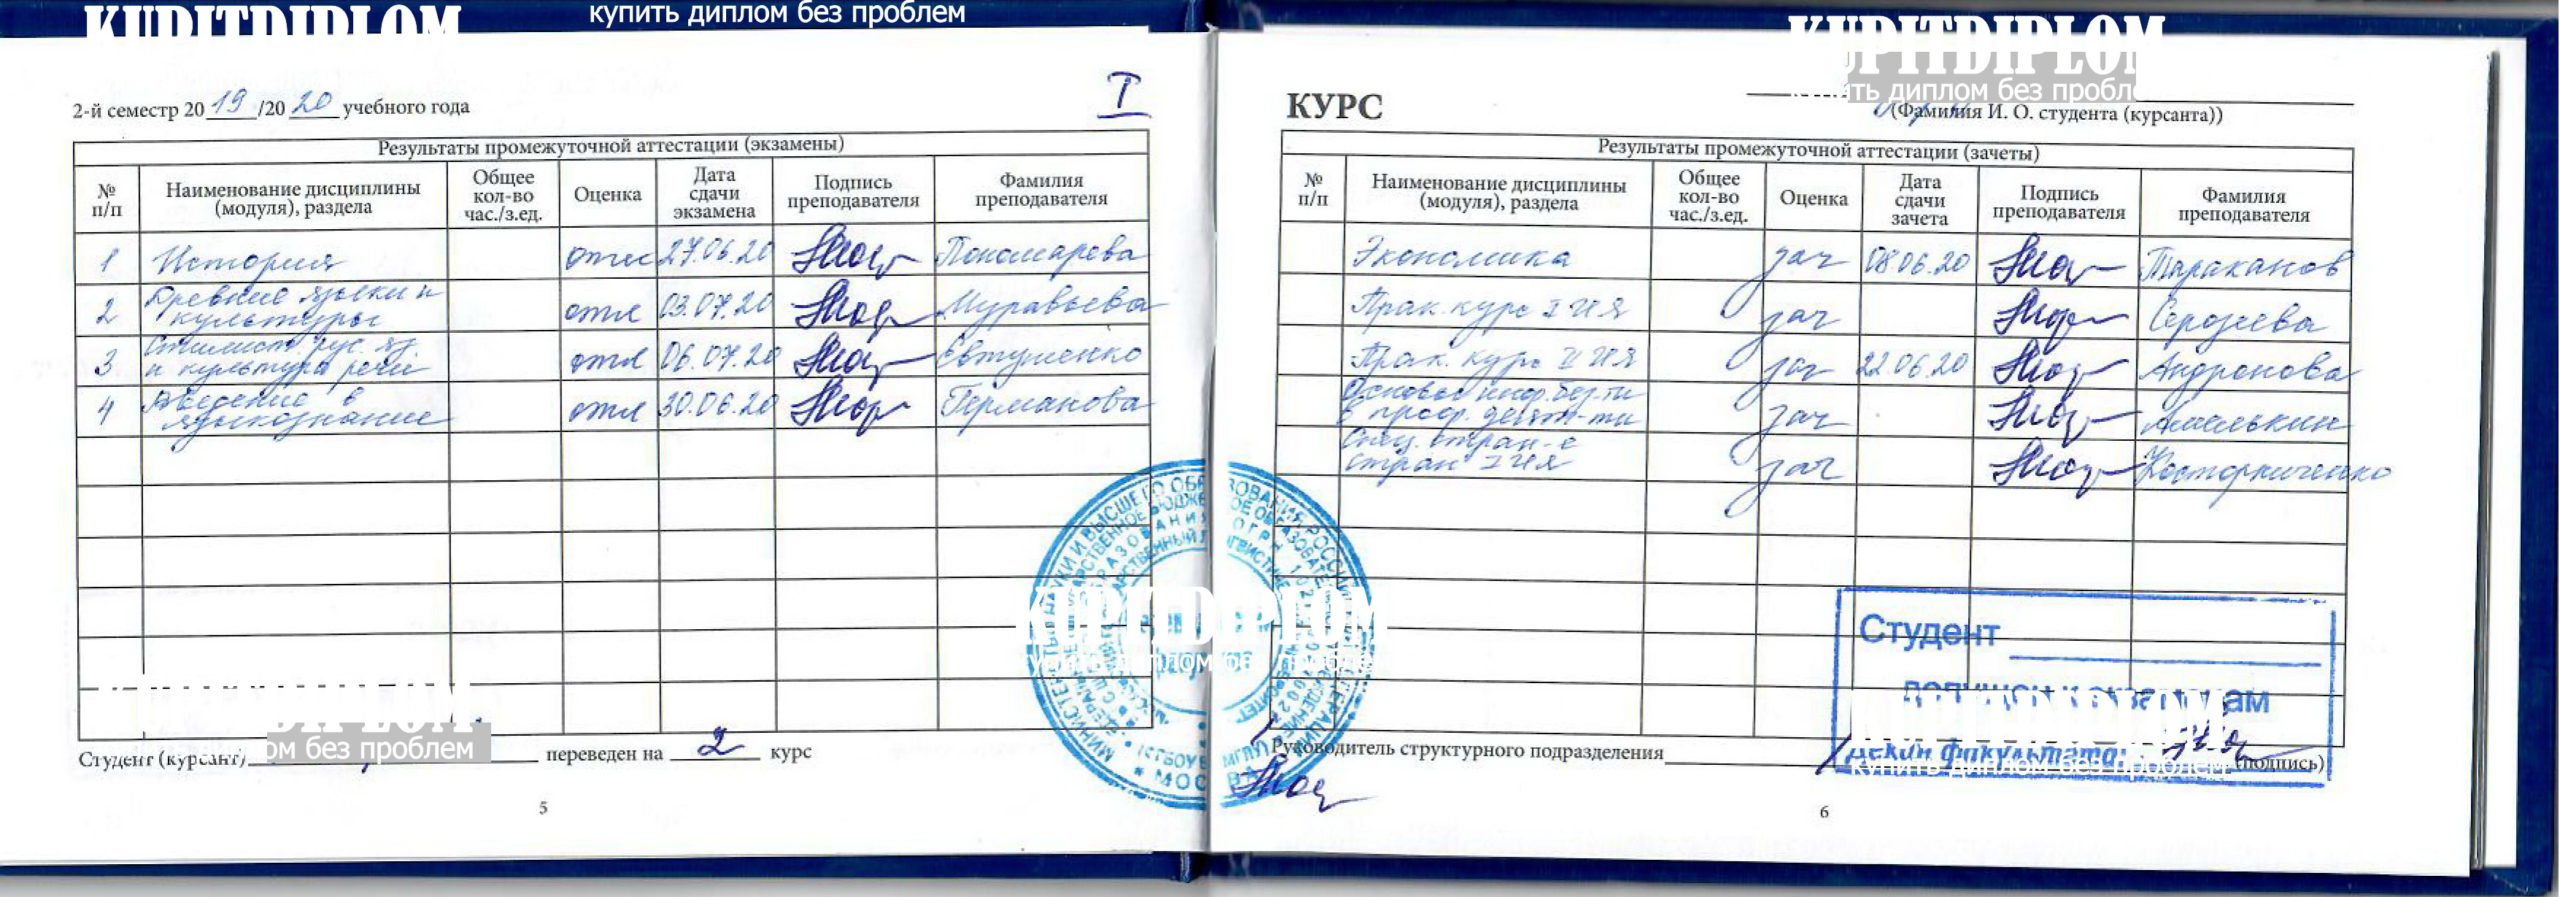 KUPITDIPLOM
купить диплом без проблем
KUPITDIPLOM
купить диплом без пробле
2-й семестр 20 19 /20 20 учебного года
I
Результаты промежуточной аттестации (экзамены)
№ п/п Наименование дисциплины (модуля), раздела Общее кол-во час./з.ед. Оценка Дата сдачи экзамена Подпись преподавателя Фамилия преподавателя
1 История отл 27.06.20 Пономарева
2 Древние языки и культуры отл 03.07.20 Муравьева
3 Стилист. рус. яз. и культура речи отл 06.07.20 Евтушенко
4 Введение в языкознание отл 30.06.20 Германова
KUPITDIPLOM
ом без проблем
Студент (курсант) переведен на 2 курс
5
КУРС
(Фамилия И. О. студента (курсанта))
Результаты промежуточной аттестации (зачеты)
№ п/п Наименование дисциплины (модуля), раздела Общее кол-во час./з.ед. Оценка Дата сдачи зачета Подпись преподавателя Фамилия преподавателя
Экономика зач 08.06.20 Тараканов
Прак. курс I ИЯ зач Сергеева
Прак. курс II ИЯ зач 22.06.20 Андронова
Основы инф. без-ти в проф. деят-ти зач Амелькин
стран I ИЯ зач Косторниченко
KUPITDIPLOM
купить диплом без проблем
Студент
Декан факультета
Руководитель структурного подразделения
(подпись)
купить диплом без проблем
6